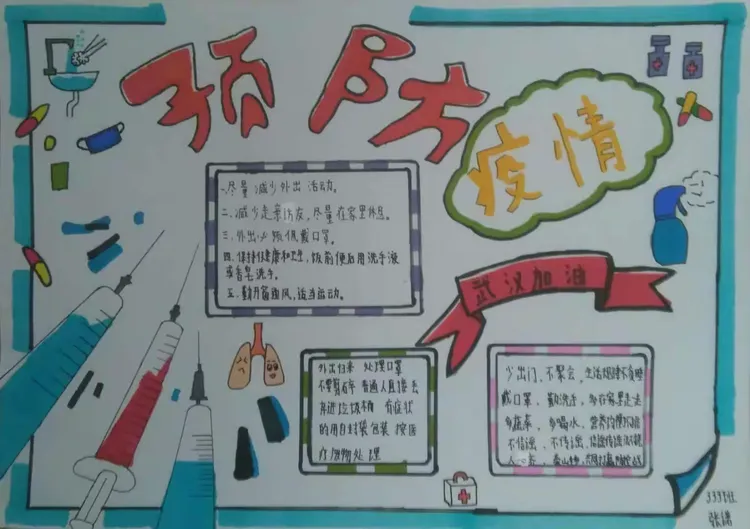 预防
疫情
一.尽量减少外出活动。
二.减少走亲访友,尽量在家里休息。
三.外出必须佩戴口罩。
四.保持健康和卫生,饭前便后用洗手液
或香皂洗手。
五.勤开窗通风,适当运动。
武汉加油
外出归来 处理口罩
普通人直接丢
弃进垃圾桶 有症状
的用自封袋包装 按医
疗废物处理
少出门、不聚会、生活规律不
戴口罩、勤洗手、多在家里走走
多蔬菜、多喝水、营养均衡
不信谣、不传谣、